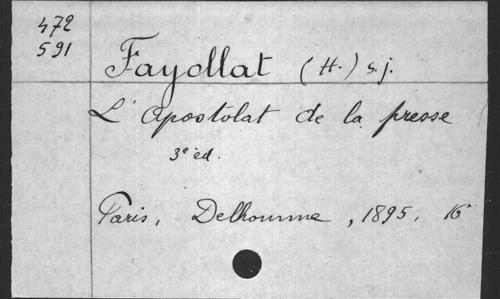 472
591
Fayollat (H.) s.j.
L'Apostolat de la presse
3e éd.
Paris, Delhomme, 1895, 16°